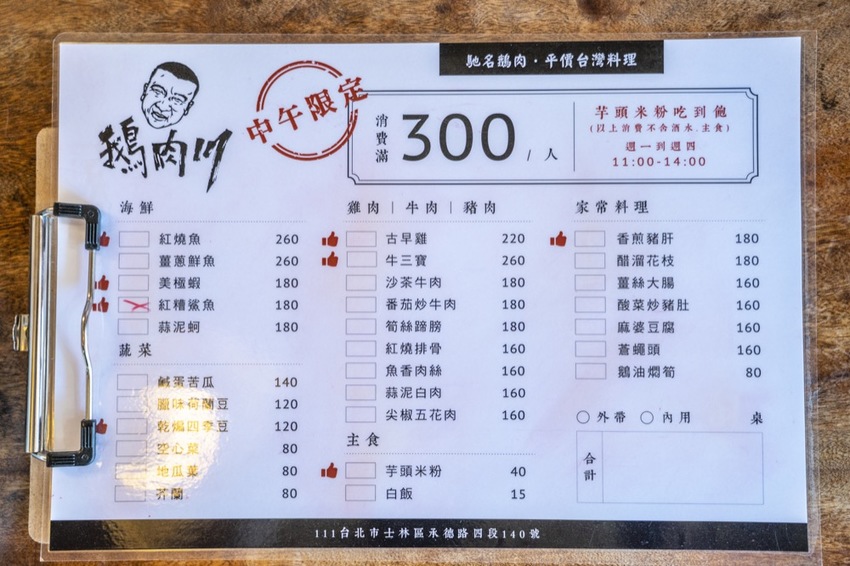 馳名鵝肉・平價台灣料理
鵝肉川
中午限定
消費滿
300 / 人
芋頭米粉吃到飽
(以上消費不含酒水.主食)
週一到週四
11:00-14:00
海鮮
紅燒魚 260
薑蔥鮮魚 260
美極蝦 180
紅糟鯊魚 180
蒜泥蚵 180
蔬菜
鹹蛋苦瓜 140
臘味荷蘭豆 120
乾煸四季豆 120
空心菜 80
地瓜葉 80
芥蘭 80
雞肉｜牛肉｜豬肉
古早雞 220
牛三寶 260
沙茶牛肉 180
番茄炒牛肉 180
筍絲蹄膀 180
紅燒排骨 160
魚香肉絲 160
蒜泥白肉 160
尖椒五花肉 160
主食
芋頭米粉 40
白飯 15
家常料理
香煎豬肝 180
醋溜花枝 180
薑絲大腸 160
酸菜炒豬肚 160
麻婆豆腐 160
蒼蠅頭 160
鵝油燜筍 80
外帶 內用 桌
合計
111台北市士林區承德路四段140號